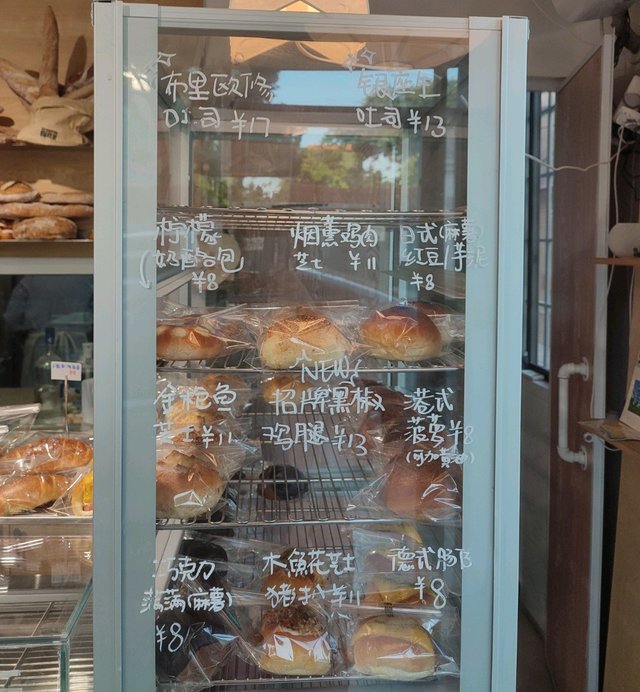 布里欧修
吐司 ¥17
银座生
吐司 ¥13
柠檬
(奶酪包
¥8
烟熏鸡肉
芝士 ¥11
日式(麻薯)
红豆/芋泥
¥8
NEW
金枪鱼
芝士 ¥11
招牌黑椒
鸡腿 ¥13
港式
菠萝 ¥8
(可加黄油)
巧克力
菠萝(麻薯)
¥8
木鱼花芝士
猪扒 ¥11
德式肠包
¥8